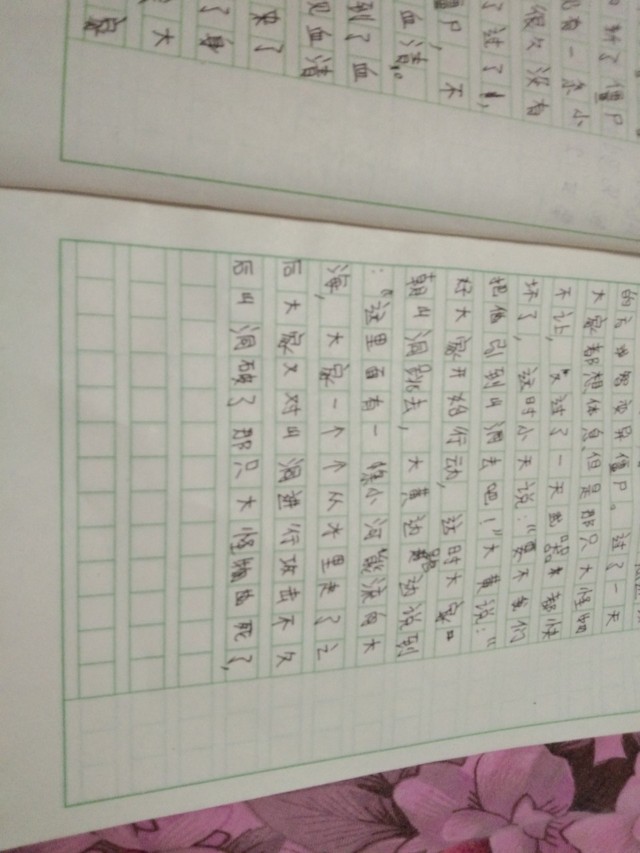 了僵尸
有一条小
很久没有
了过了1,
僵尸，不
血清。
到了血
见血清
来了
了
大
家
变异僵尸。过了一天
大家都想休息但是那只大怪物
不让，又过了一天的器都快
坏了，这时小天说：“要不我们
把他引到叫洞去吧！”大黄说：“
好大家开始行动，这时大家
朝叫洞跑去，大黄边边说到
：“这里面有一条小河能流向大
海，大家一个个从水里走了之
后大家又对叫洞进行攻击不久
后叫洞破了那只大怪物也死了，